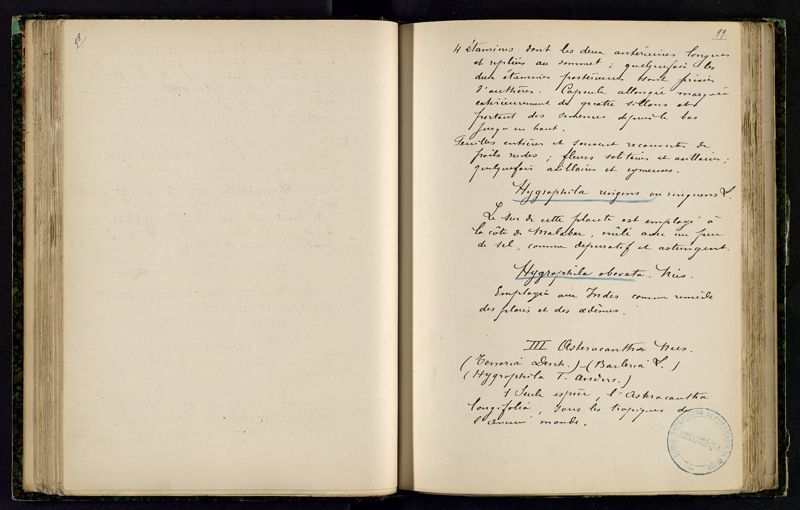 98
99
4 étamines dont les deux antérieures longues
et repliées au sommet ; quelquefois les
deux étamines postérieures sont privées
d'anthères. Capsule allongée marquée
extérieurement de quatre sillons et
portant des semences depuis le bas
jusqu'en haut.
Feuilles entières et souvent recouvertes de
poils rudes ; fleurs solitaires et axillaires ;
quelquefois axillaires et cymeuses.
Hygrophila ringens ou ringuens L.
Le suc de cette plante est employé à
la côte de Malabar, mêlé avec un peu
de sel, comme dépuratif et astringent.
Hygrophila obovata. Nees.
Employée aux Indes comme remède
des plaies et des œdèmes.
III Asteracantha Nees.
( Dent. ) - ( Barleria L. )
( Hygrophila T. Anders. )
1 Seule espèce, l'Asteracantha
longifolia, sous les tropiques de
l'ancien monde.
BIBLIOTHÈQUE